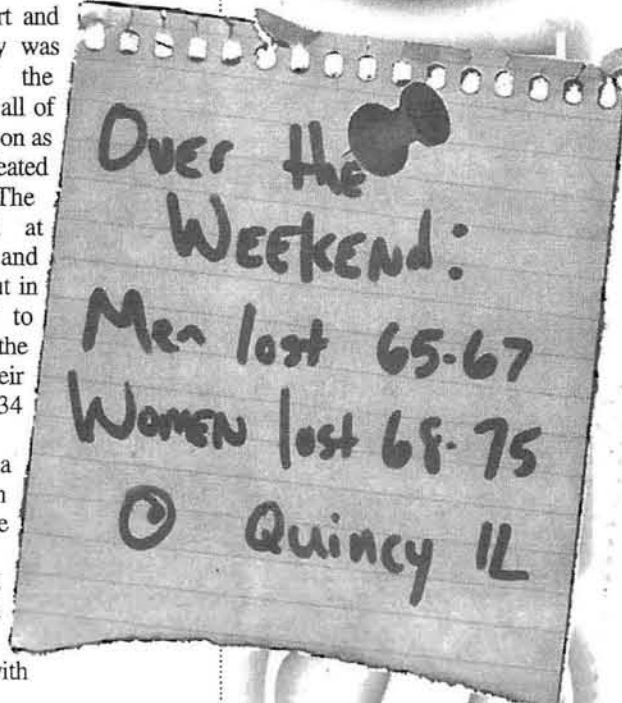 rt and
y was
the
all of
on as
eated
The
at
and
it in
to
the
eir
34
a
n
e
vith
Over the
WEEKEND:
Men lost 65-67
WOMEN lost 68-75
@ Quincy IL